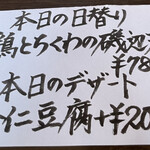 本日の日替り
鶏とちくわの磯辺
¥78
本日のデザート
仁豆腐+¥20